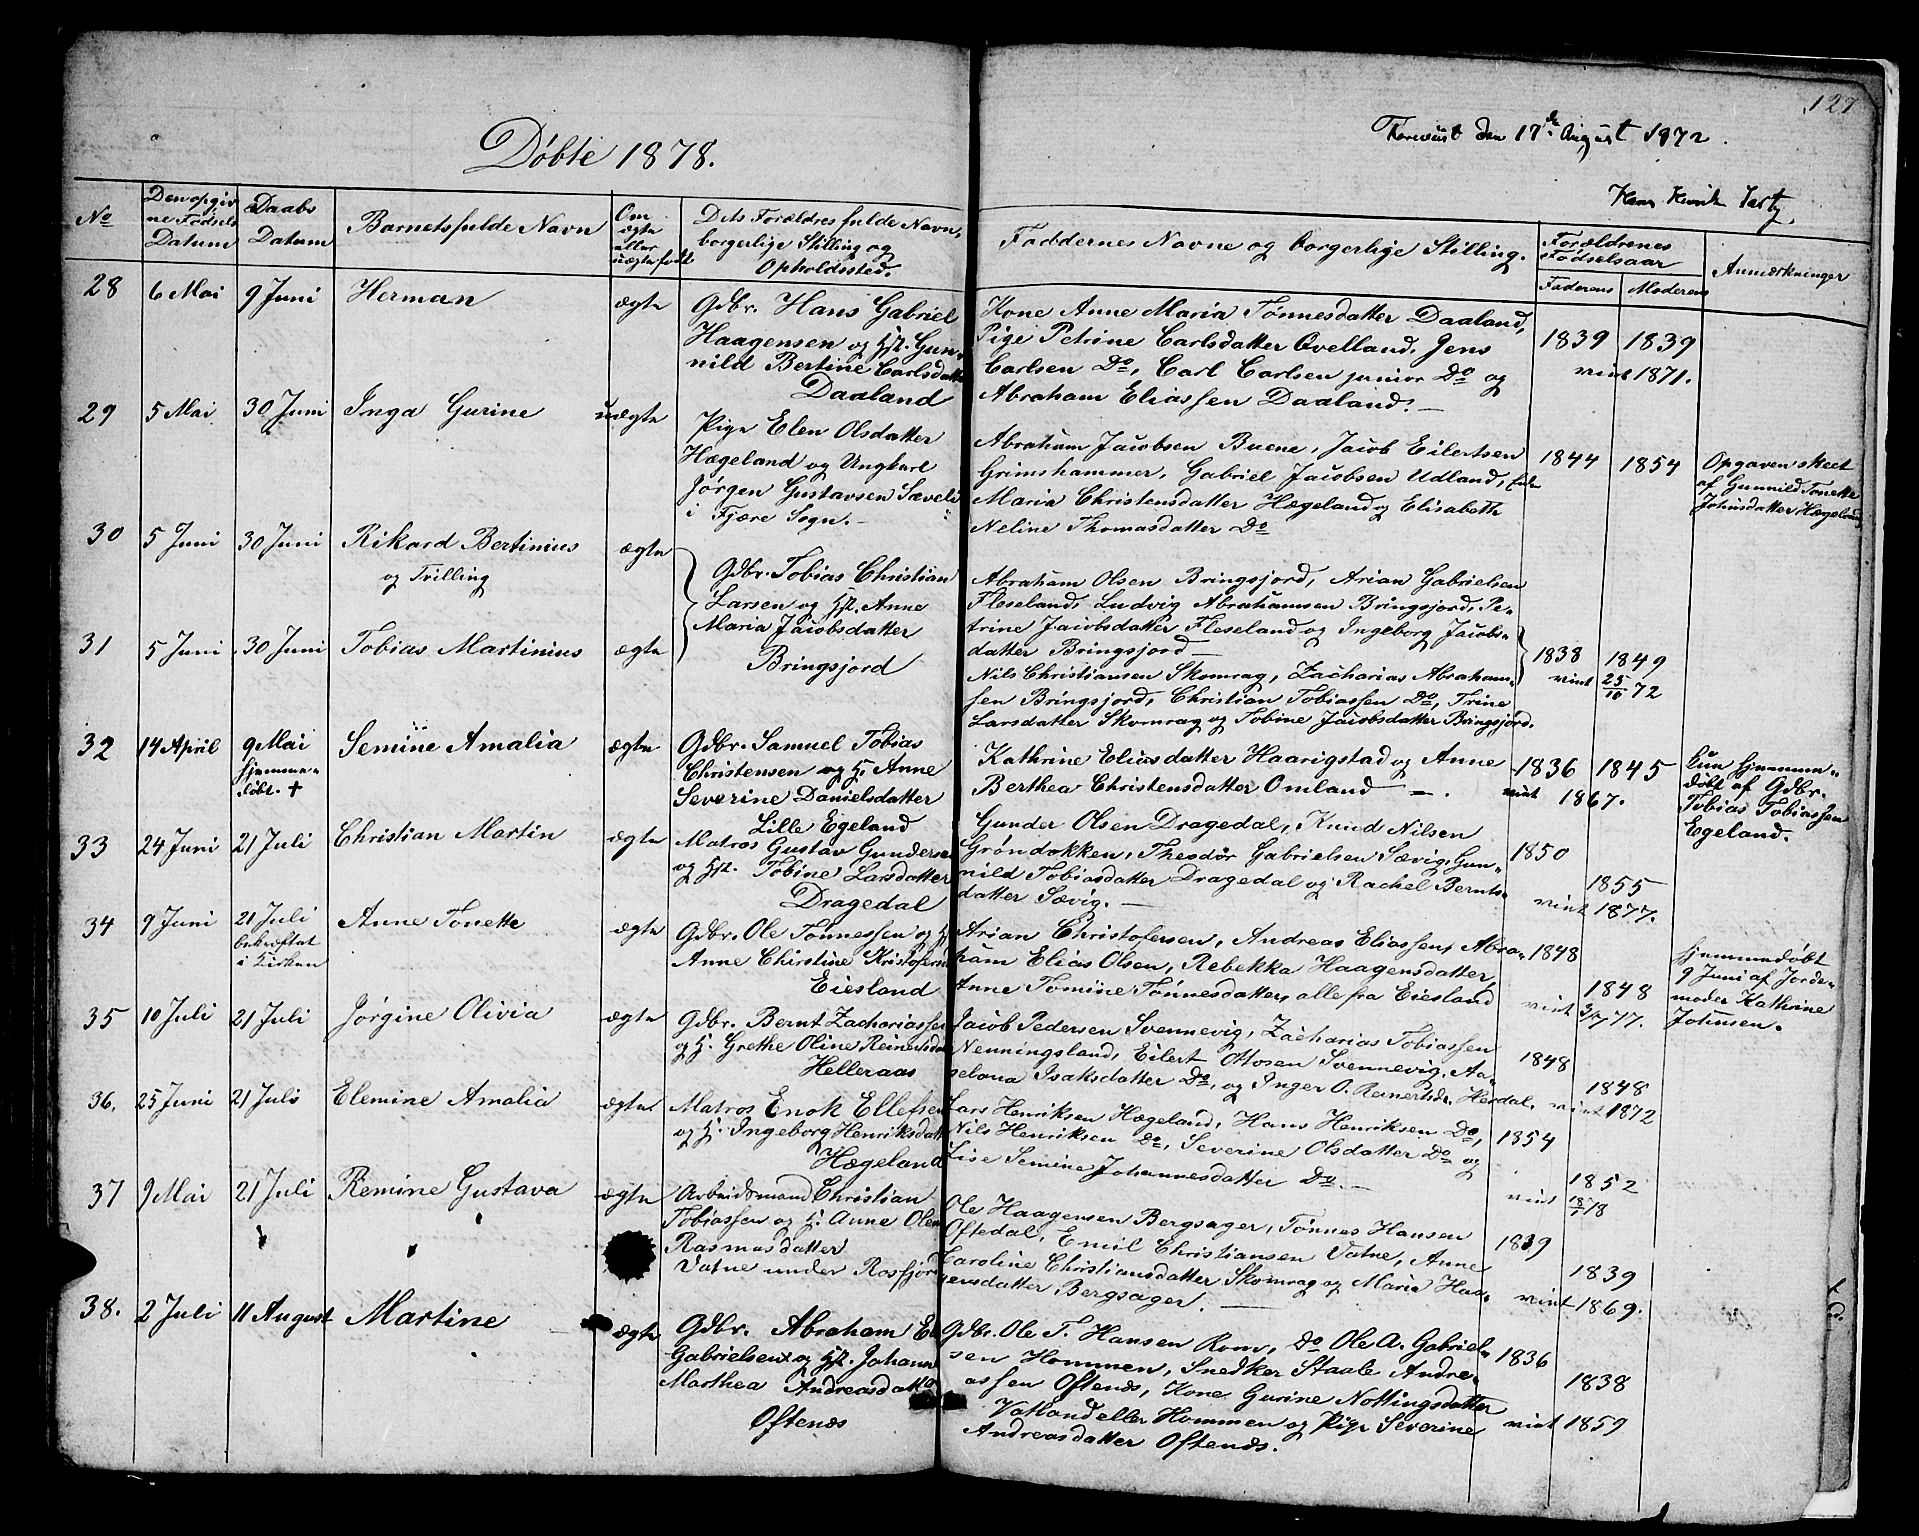 127
Forevist den 17de August 1872.
Døbte 1878.
No
Den opgiv
ne Fødsels
Datum
Daabs
Datum
Barnets fulde Navn
Om
ægte
eller
uægte født
Dets Forældres fulde Navn,
borgerlige Stilling og
Opholdssted.
Faddernes Navne og borgerlige Stilling.
Forældrenes
Fødselsaar
Faderens
Moderens
Anmærkninger
28
6 Mai
9 Juni
Herman
ægte
Gdbr. Hans Gabriel
Haagensen og Hst. Gun-
nild Bertine Carlsdatter
Daaland
Kone Anne Maria Tønnesdatter Daaland,
Pige Petrine Carlsdatter Ovelland. Jens
Carlsen Do, Carl Carlsen junior Do og
Abraham Eliassen Daaland. —
1839
1839
viet 1871.
29
5 Mai
30 Juni
Inga Gurine
uægte
Pige Elen Olsdatter
Hægeland og Ungkarl
Jørgen Gustavsen Sæveli
i Fjære Sogn. —
Abraham Jacobsen Buene, Jacob Eilertsen
Grimshammer, Gabriel Jacobsen Udland,
Maria Christensdatter Hægeland og Elisabeth
Neline Thomasdatter Do
1844
1854
Opgaven skeet
af Gunnild Tonette
Johnsdatter Hægeland
30
5 Juni
30 Juni
Rikard Bertinius
og Tvilling
ægte
Gdbr. Tobias Christian
Larsen og Hst. Anne
Maria Jacobsdatter
Bringsjord
Abraham Olsen Bringsjord, Arian Gabrielsen
Fleseland, Ludvig Abrahamsen Bringsjord, Pe-
trine Jacobsdatter Fleseland og Ingeborg Jacobs-
datter Bringsjord —
31
5 Juni
30 Juni
Tobias Martinius
ægte
Nils Christiansen Skomrag, Zacharias Abraham-
sen Bringsjord, Christian Tobiassen Do, Trine
Larsdatter Skomrag og Tobine Jacobsdatter Bringsjord.
1838
1849
viet 25/10 72
32
14 April
9 Mai
hjemme-
døbt. +
Semine Amalia
ægte
Gdbr. Samuel Tobias
Christensen og H. Anne
Severine Danielsdatter
Lille Egeland
Kathrine Eliasdatter Haarigstad og Anne
Berthea Christensdatter Omland —.
1836
1845
viet 1867.
Kun hjemme-
døbt af Gdbr.
Tobias Tobiassen
Egeland.
33
24 Juni
21 Juli
Christian Martin
ægte
Matros Gustav Gunderse
og Hst. Tobine Larsdatter
Dragedal
Gunder Olsen Dragedal, Knud Nilsen
Grøndokken, Theodor Gabrielsen Sævig, Gun-
nild Tobiasdatter Dragedal og Rachel Bernts-
datter Sævig. —
1850
1855
viet 1877.
34
9 Juni
21 Juli
bekræftet
i Kirken
Anne Tonette
ægte
Gdbr. Ole Tønnessen og H
Anne Chirstine Kristofers
Eiesland
Arian Christofersen, Andreas Eliassen, Abra-
ham Elias Olsen, Rebekka Haagensdatter,
Anne Tomine Tønnesdatter, alle fra Eiesland
1848
1848
viet 3/7 77.
hjemmedøbt
9 Juni af Jorde-
moder Kathrine
Johnsen.
35
10 Juli
21 Juli
Jørgine Olivia
ægte
Gdbr. Bernt Zachariassen
og H. Grethe Oline Reinertsda
Helleraas
Jacob Pedersen Svennevig, Zacharias Tobiassen
Nenningsland, Eilert Ottosen Svennevig. Aa-
selona Isaksdatter Do, og Inger O. Reinertsdr. Herdal.
1848
1848
viet 1872
36.
25 Juni
21 Juli
Elemine Amalia
ægte
Matros Enok Ellefsen
og H. Ingeborg Henriksdatt
Hægeland
Lars Henriksen Hægeland, Hans Henriksen Do,
Nils Henriksen Do, Severine Olsdatter Do og
Lise Semine Johannesdatter Do. —
1854
1852
viet 18/1 78
37
9 Mai
21 Juli
Remine Gustava
ægte
Arbeidsmand Christian
Tobiassen og H. Anne Olene
Rasmusdatter
Vatne under Rosfjord
Ole Haagensen Bergsager, Tønnes Hansen
Oftedal, Emil Christiansen Vatne, Anne
Caroline Christiansdatter Skomrag og Maria Haa-
gensdatter Bergsager. —
1839
1839
viet 1869.
38.
2 Juli
11 August
Martine
ægte
Gdbr. Abraham El
Gabrielsen og Hst. Johann
Marthea Andreasdatte
Oftenes
Gdbr. Ole T. Hansen Rom, Do Ole A. Gabriel-
sen Hommen, Snedker Staale Andre-
assen Oftenes, Kone Gurine Nottingsdatter
Vatland eller Hommen og Pige Severine
Andreasdatter Oftenes.
1836
1838
viet 1859